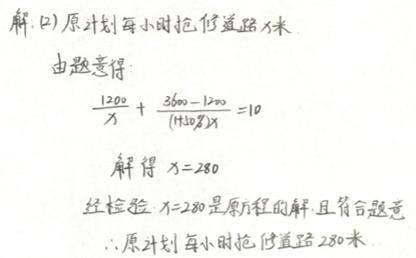 解:(2)原计划每小时抢修道路x米
由题意得:
1200/x + (3600-1200)/((1+50%)x) =10
解得 x=280
经检验:x=280是原方程的解.且符合题意
∴原计划每小时抢修道路280米.